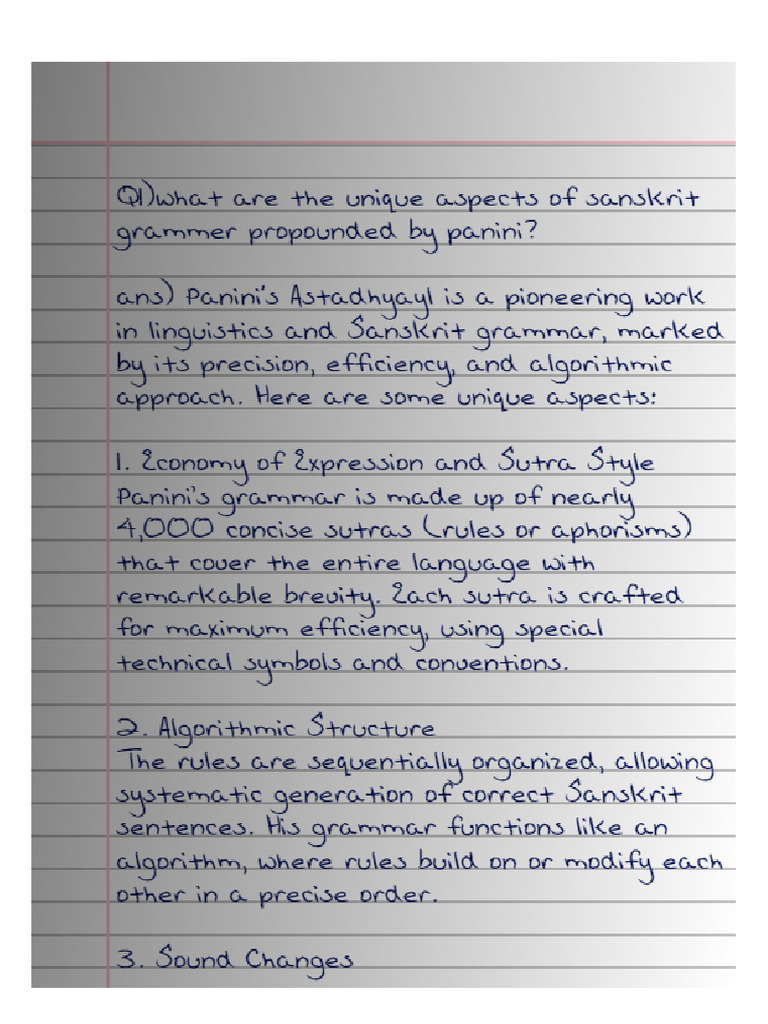 Q1)what are the unique aspects of sanskrit
grammer propounded by panini?
ans) Panini's Astadhyayl is a pioneering work
in linguistics and Sanskrit grammar, marked
by its precision, efficiency, and algorithmic
approach. Here are some unique aspects:
1. Economy of Expression and Sutra Style
Panini's grammar is made up of nearly
4,000 concise sutras (rules or aphorisms)
that cover the entire language with
remarkable brevity. Each sutra is crafted
for maximum efficiency, using special
technical symbols and conventions.
2. Algorithmic Structure
The rules are sequentially organized, allowing
systematic generation of correct Sanskrit
sentences. His grammar functions like an
algorithm, where rules build on or modify each
other in a precise order.
3. Sound Changes